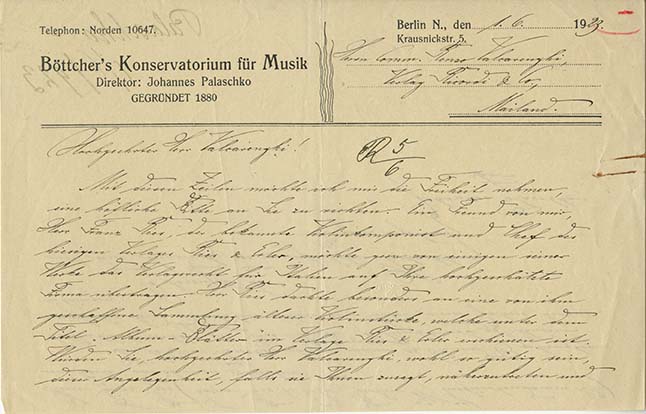 Telephon: Norden 10647.
Böttcher's Konservatorium für Musik
Direktor: Johannes Palaschko
GEGRÜNDET 1880
Berlin N., den 1. 6. 1923
Krausnickstr. 5.
Herrn Comm. Renzo Valcarenghi,
Verlag Ricordi & Co,
Mailand.
R 5/6
Hochgeehrter Herr Valcarenghi!
Mit diesen Zeilen möchte ich mir die Freiheit nehmen,
eine höfliche Bitte an Sie zu richten. Ein Freund von mir,
Herr Franz Ries, der bekannte Violinkomponist und Chef des
hiesigen Verlages Ries & Erler, möchte gern von einigen seiner
Werke das Verlagsrecht für Italien auf Ihre hochgeschätzte
Firma übertragen. Herr Ries dachte besonders an eine von ihm
geschaffene Sammlung älterer Violinstücke, welche unter dem
Titel: Album-Blätter im Verlage Ries & Erler erschienen ist.
Würden Sie, hochgeehrter Herr Valcarenghi, wohl so gütig sein,
diese Angelegenheit, falls sie Ihnen zusagt, näherzutreten und